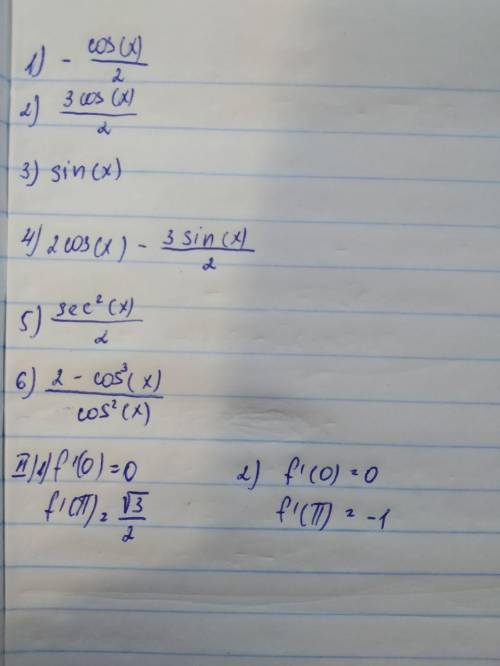 1) - cos(x)/2
2) 3 cos(x)/2
3) sin(x)
4) 2cos(x) - 3 sin(x)/2
5) sec²(x)/2
6) 2 - cos³(x)/cos²(x)
II) 1) f'(0) = 0 2) f'(0) = 0
f'(π) = √3/2 f'(π) = -1